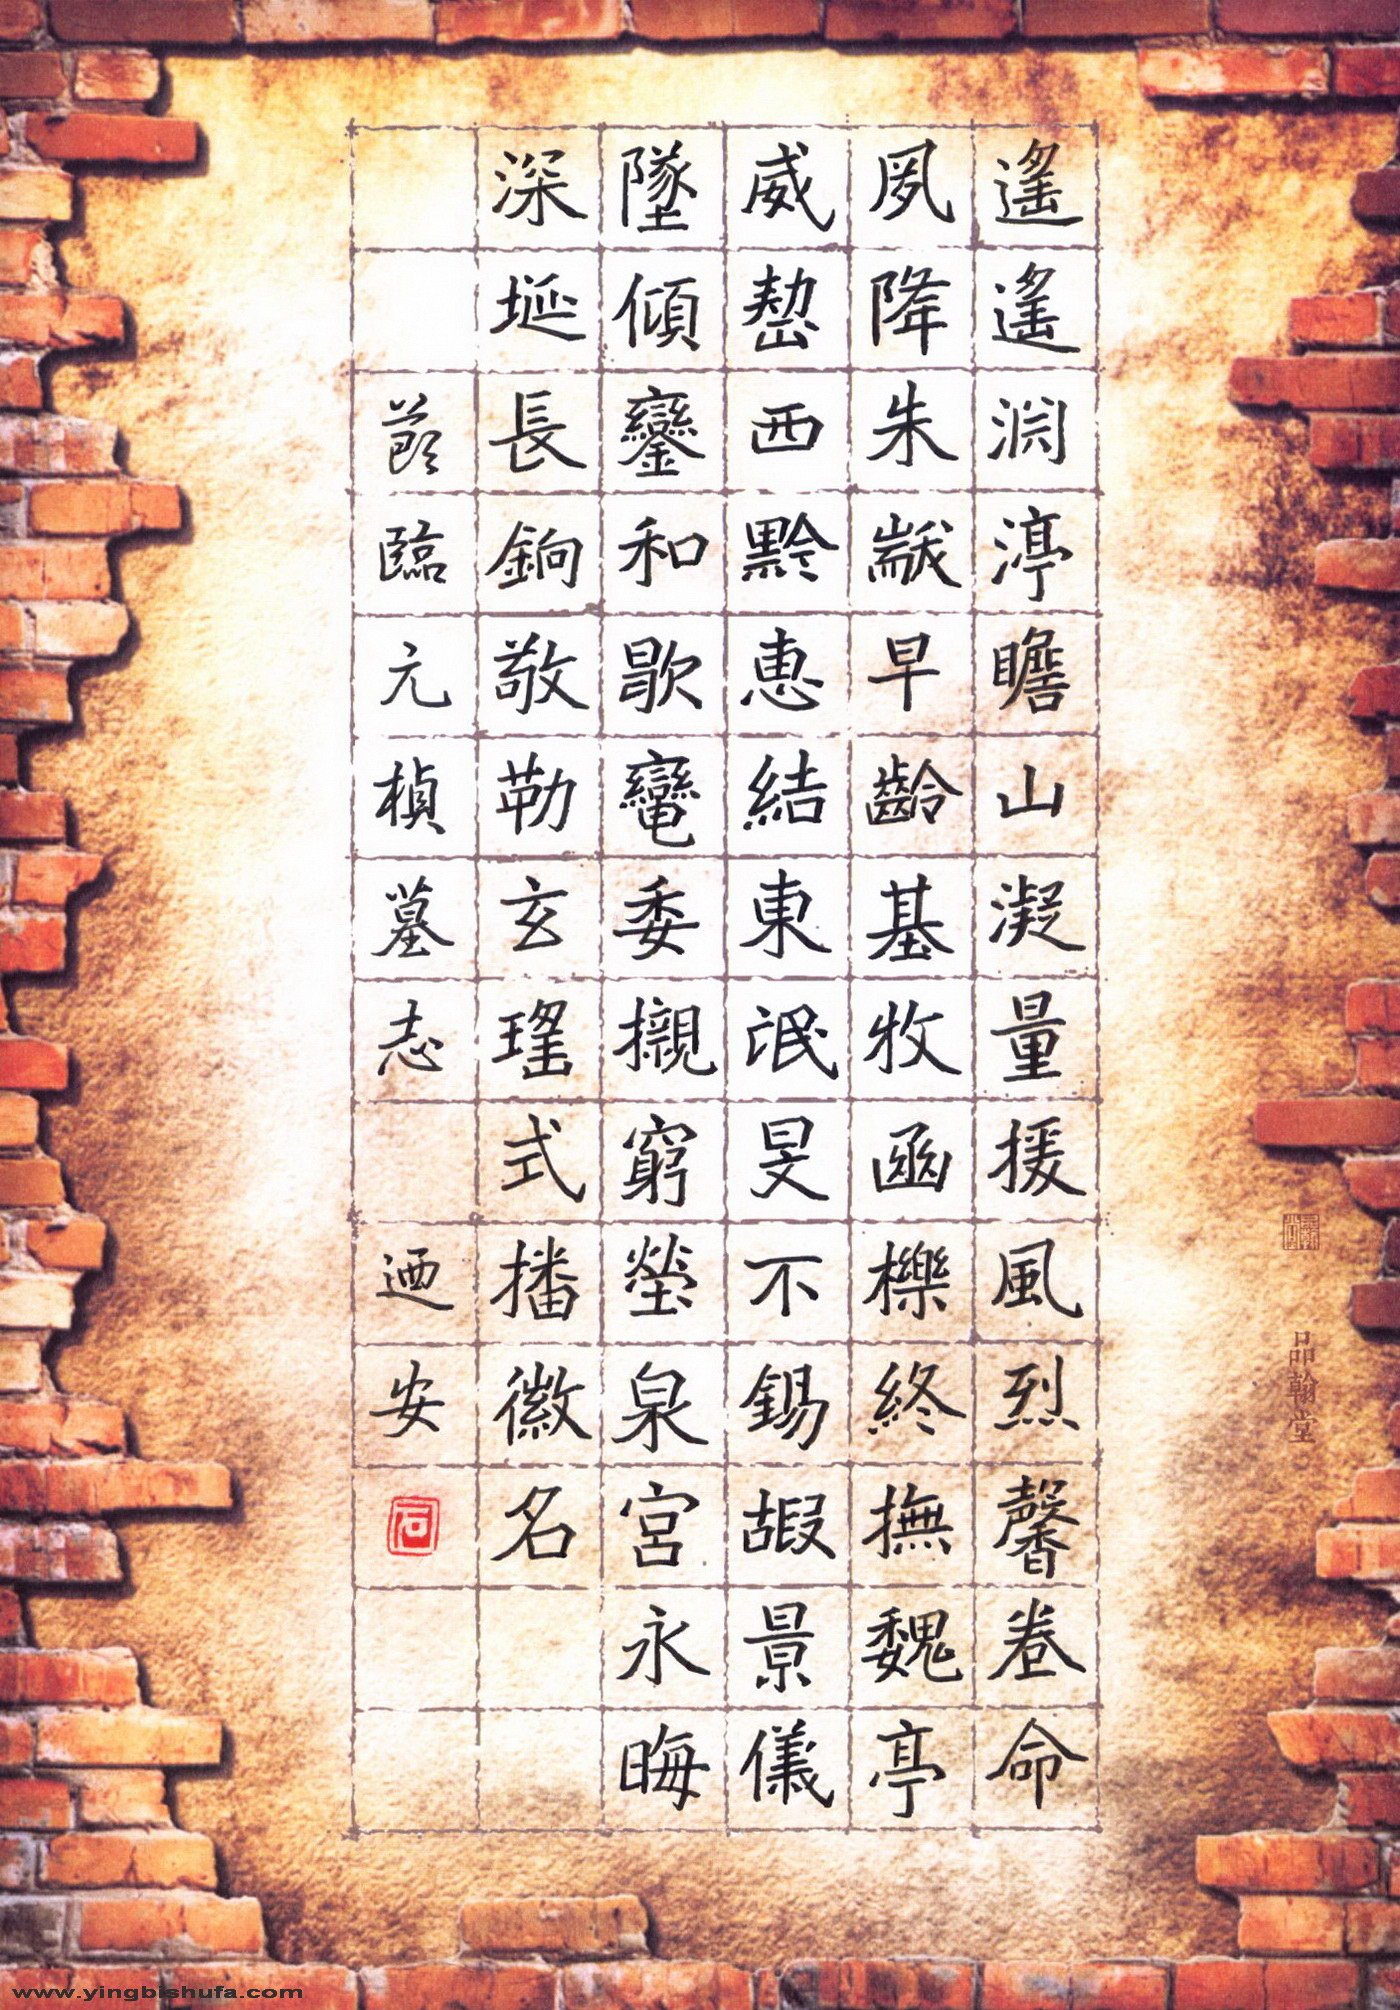 遙遙淵渟瞻山凝量援風烈馨卷命
夙降朱黻早齡基牧函櫟終撫魏亭
威嶅西黔惠結東氓旻不錫嘏景儀
墜傾鑾和歇鸞委櫬窮塋泉宮永晦
深埏長銄敬勒玄瑤式播徽名
節臨元楨墓志 迺安
品翰堂
www.yingbishufa.com